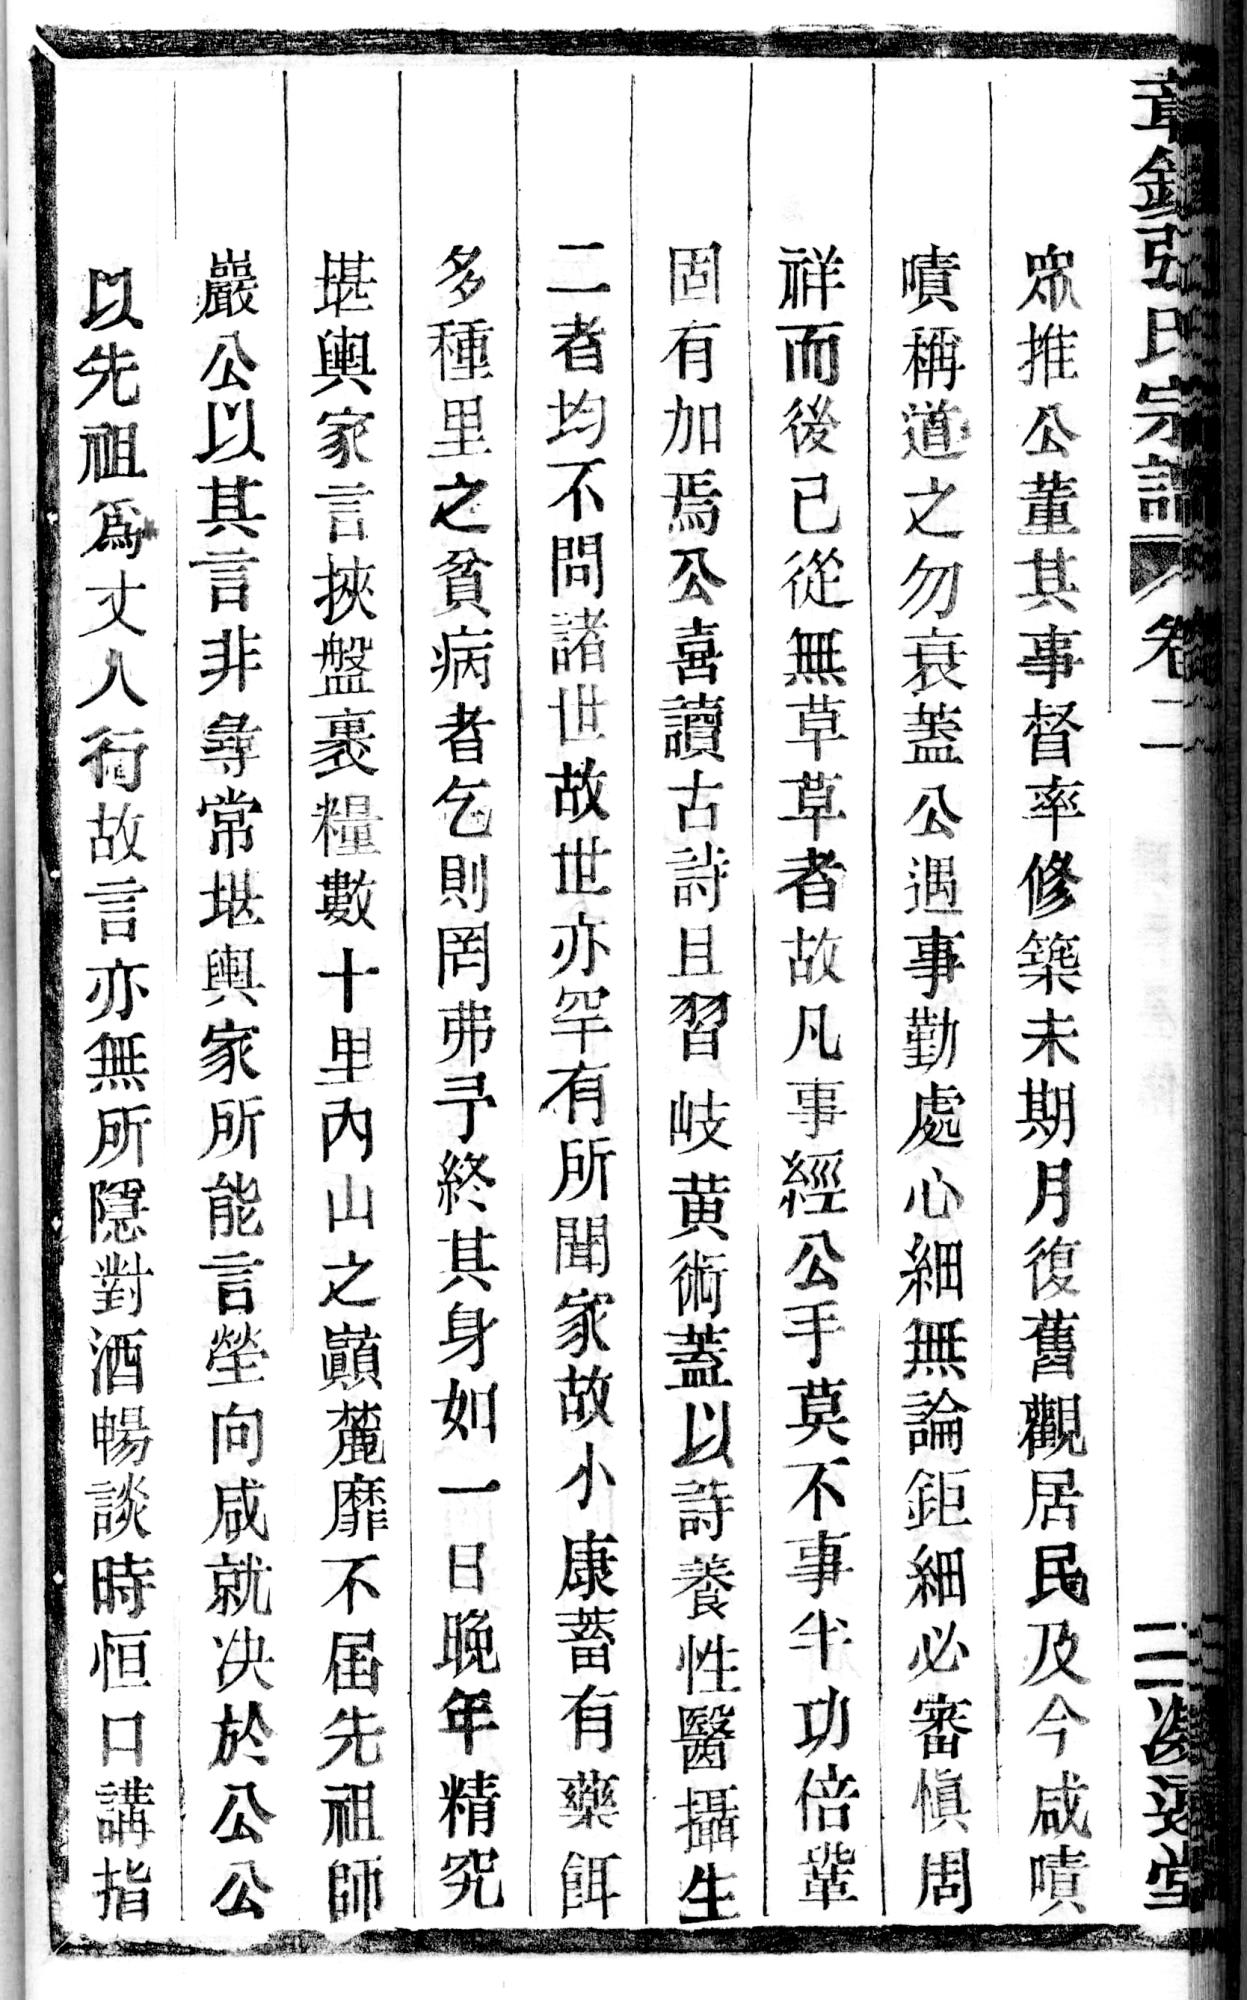 氏宗譜 卷二
眾推公董其事督率修築未期月復舊觀居民及今咸嘖
嘖稱道之勿衰蓋公遇事勤處心細無論鉅細必審慎周
祥而後已從無草草者故凡事經公手莫不事半功倍鞏
固有加焉公喜讀古詩且習岐黃術蓋以詩養性醫攝生
二者均不問諸世故世亦罕有所聞家故小康蓄有藥餌
多種里之貧病者乞則罔弗予終其身如一日晚年精究
堪輿家言挾盤裹糧數十里內山之巔麓靡不屆先祖師
嚴公以其言非尋常堪輿家所能言塋向咸就决於公公
以先祖爲丈人行故言亦無所隱對酒暢談時恒口講指